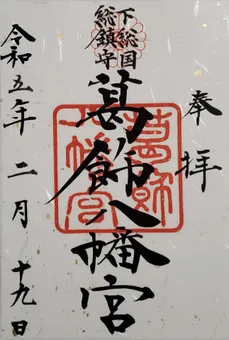 奉拝
下総国
総鎮守
葛飾八幡宮
葛飾八幡宮
令和五年二月十九日